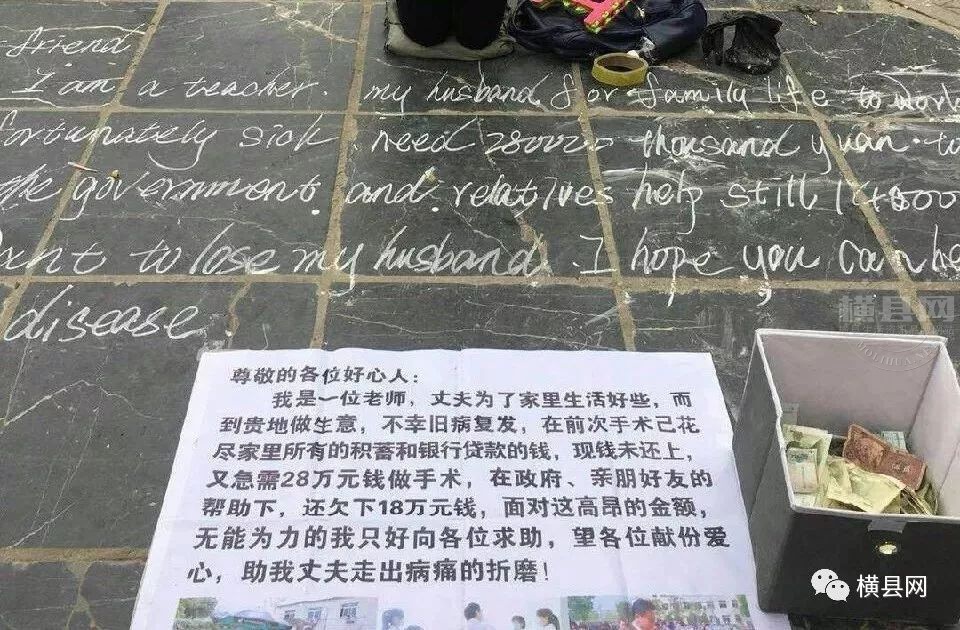 friend
I am a teacher. my husband for family life to work
fortunately sick need thousand yuan. to
the government. and relatives help still
to lose my husband. I hope you can he
disease
横县网
尊敬的各位好心人：
我是一位老师，丈夫为了家里生活好些，而
到贵地做生意，不幸旧病复发，在前次手术已花
尽家里所有的积蓄和银行贷款的钱，现钱未还上，
又急需28万元钱做手术，在政府、亲朋好友的
帮助下，还欠下18万元钱，面对这高昂的金额，
无能为力的我只好向各位求助，望各位献份爱
心，助我丈夫走出病痛的折磨！
横县网